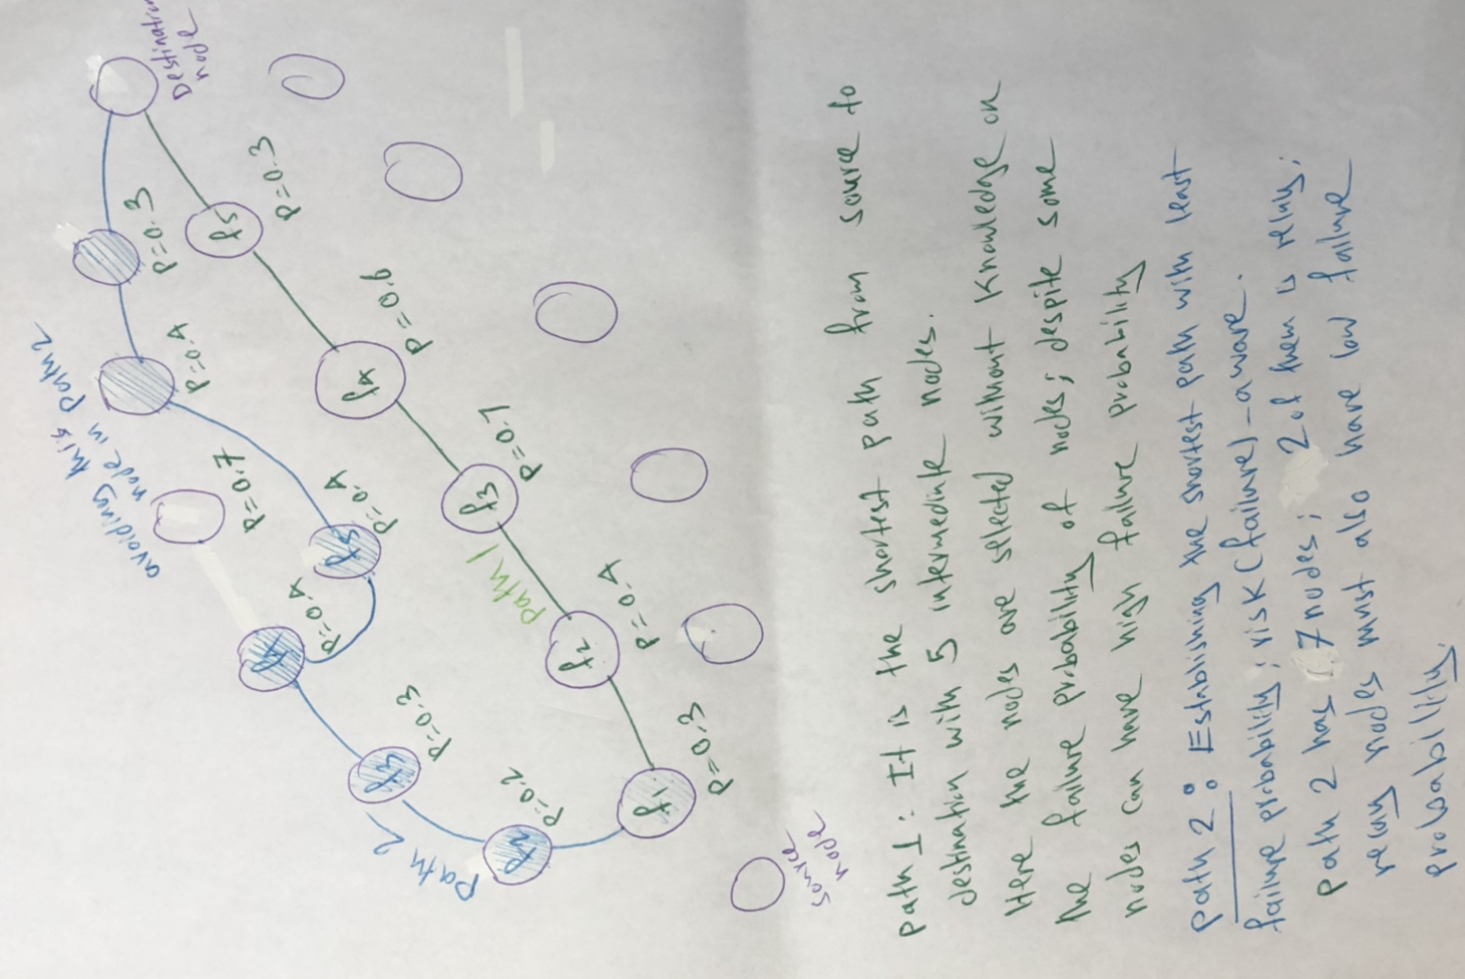 avoiding this
node in path 2
P=0.7
P=0.4
P=0.3
Destination
node
f5
P=0.3
f4
P=0.4
f5
P=0.4
f3
P=0.3
path 2
f2
P=0.2
f4
P=0.6
f3
P=0.7
path 1
f2
P=0.4
f1
P=0.3
source
node
path 1: It is the shortest path from source to
destination with 5 intermediate nodes.
Here the nodes are selected without knowledge on
the failure probability of nodes; despite some
nodes can have high failure probability
path 2: Establishing the shortest path with least
failure probability; risk (failure)-aware.
path 2 has 7 nodes; 2 of them is relay;
relay nodes must also have low failure
probability.